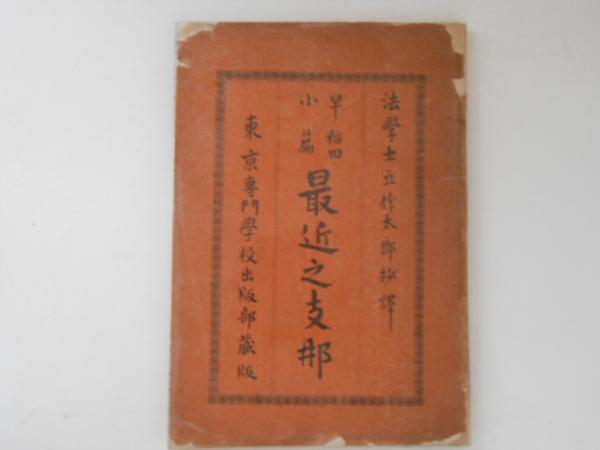 法學士立作太郎抄譯
早稲田
小篇
最近之支那
東京専門學校出版部蔵版